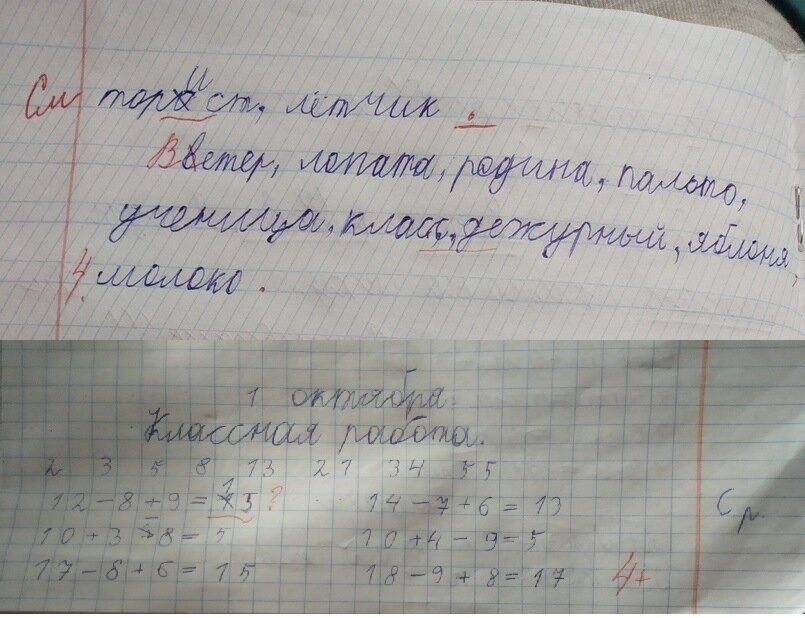 См торист, лётчик.
Ветер, лопата, родина, пальто,
ученица, класс, дежурный, яблоня,
4. молоко.
1 октября.
Классная работа.
2 3 5 8 13 21 34 55
12-8+9=13 ? 14-7+6=13 Ср.
10+3-8=5 10+4-9=5
17-8+6=15 18-9+8=17 4+